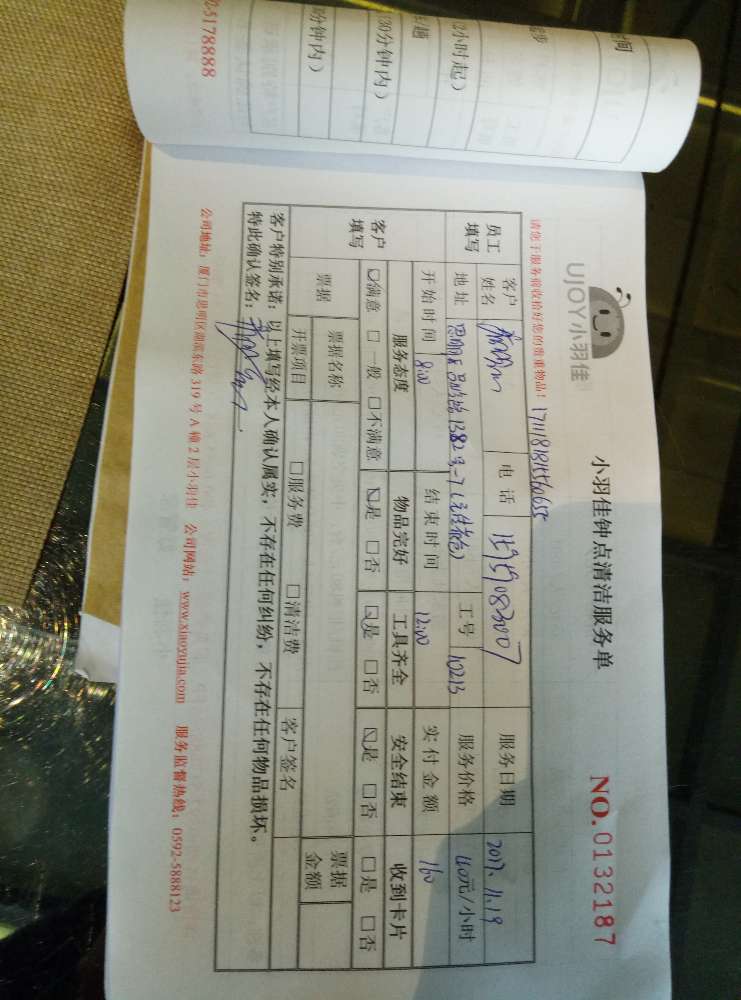 UJOY小羽佳
小羽佳钟点清洁服务单
NO.0132187
请您于服务前收拾好您的贵重物品!
员工填写 客户姓名 电话 服务日期 2017.11.19
地址 工号 10213 服务价格 40元/小时
开始时间 8:00 结束时间 12:00 实付金额 160
客户填写 服务态度 物品完好 工具齐全 安全结束 收到卡片
☑满意 □一般 □不满意 ☑是 □否 ☑是 □否 ☑是 □否 □是 □否
票据 票据名称 票据金额
开票项目 □服务费 □清洁费 客户签名
客户特别承诺:以上填写经本人确认属实,不存在任何纠纷,不存在任何物品损坏。
特此确认签名:
公司地址:厦门市思明区湖滨东路319号A幢2层小羽佳 公司网站:www.xiaoyujia.com 服务监督热线:0592-5888123
2小时起)
30分钟内)
分钟内)
5178888